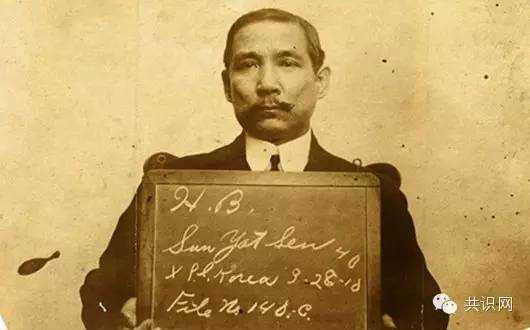 H. B.
Sun Yat Sen 40
X P.I. Korea 3-28-10
File No 140. C.
共识网